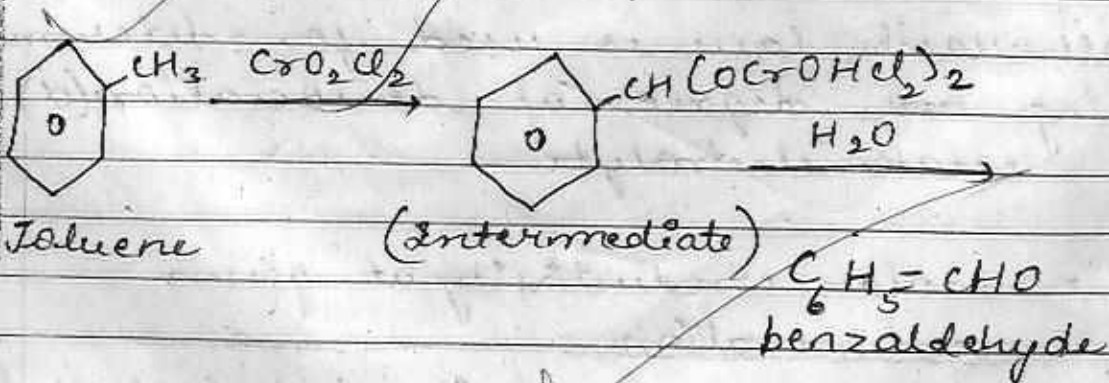 CH₃ CrO₂Cl₂ CH(OCrOHCl₂)₂
O O H₂O
Toluene (Intermediate)
C₆H₅-CHO
benzaldehyde